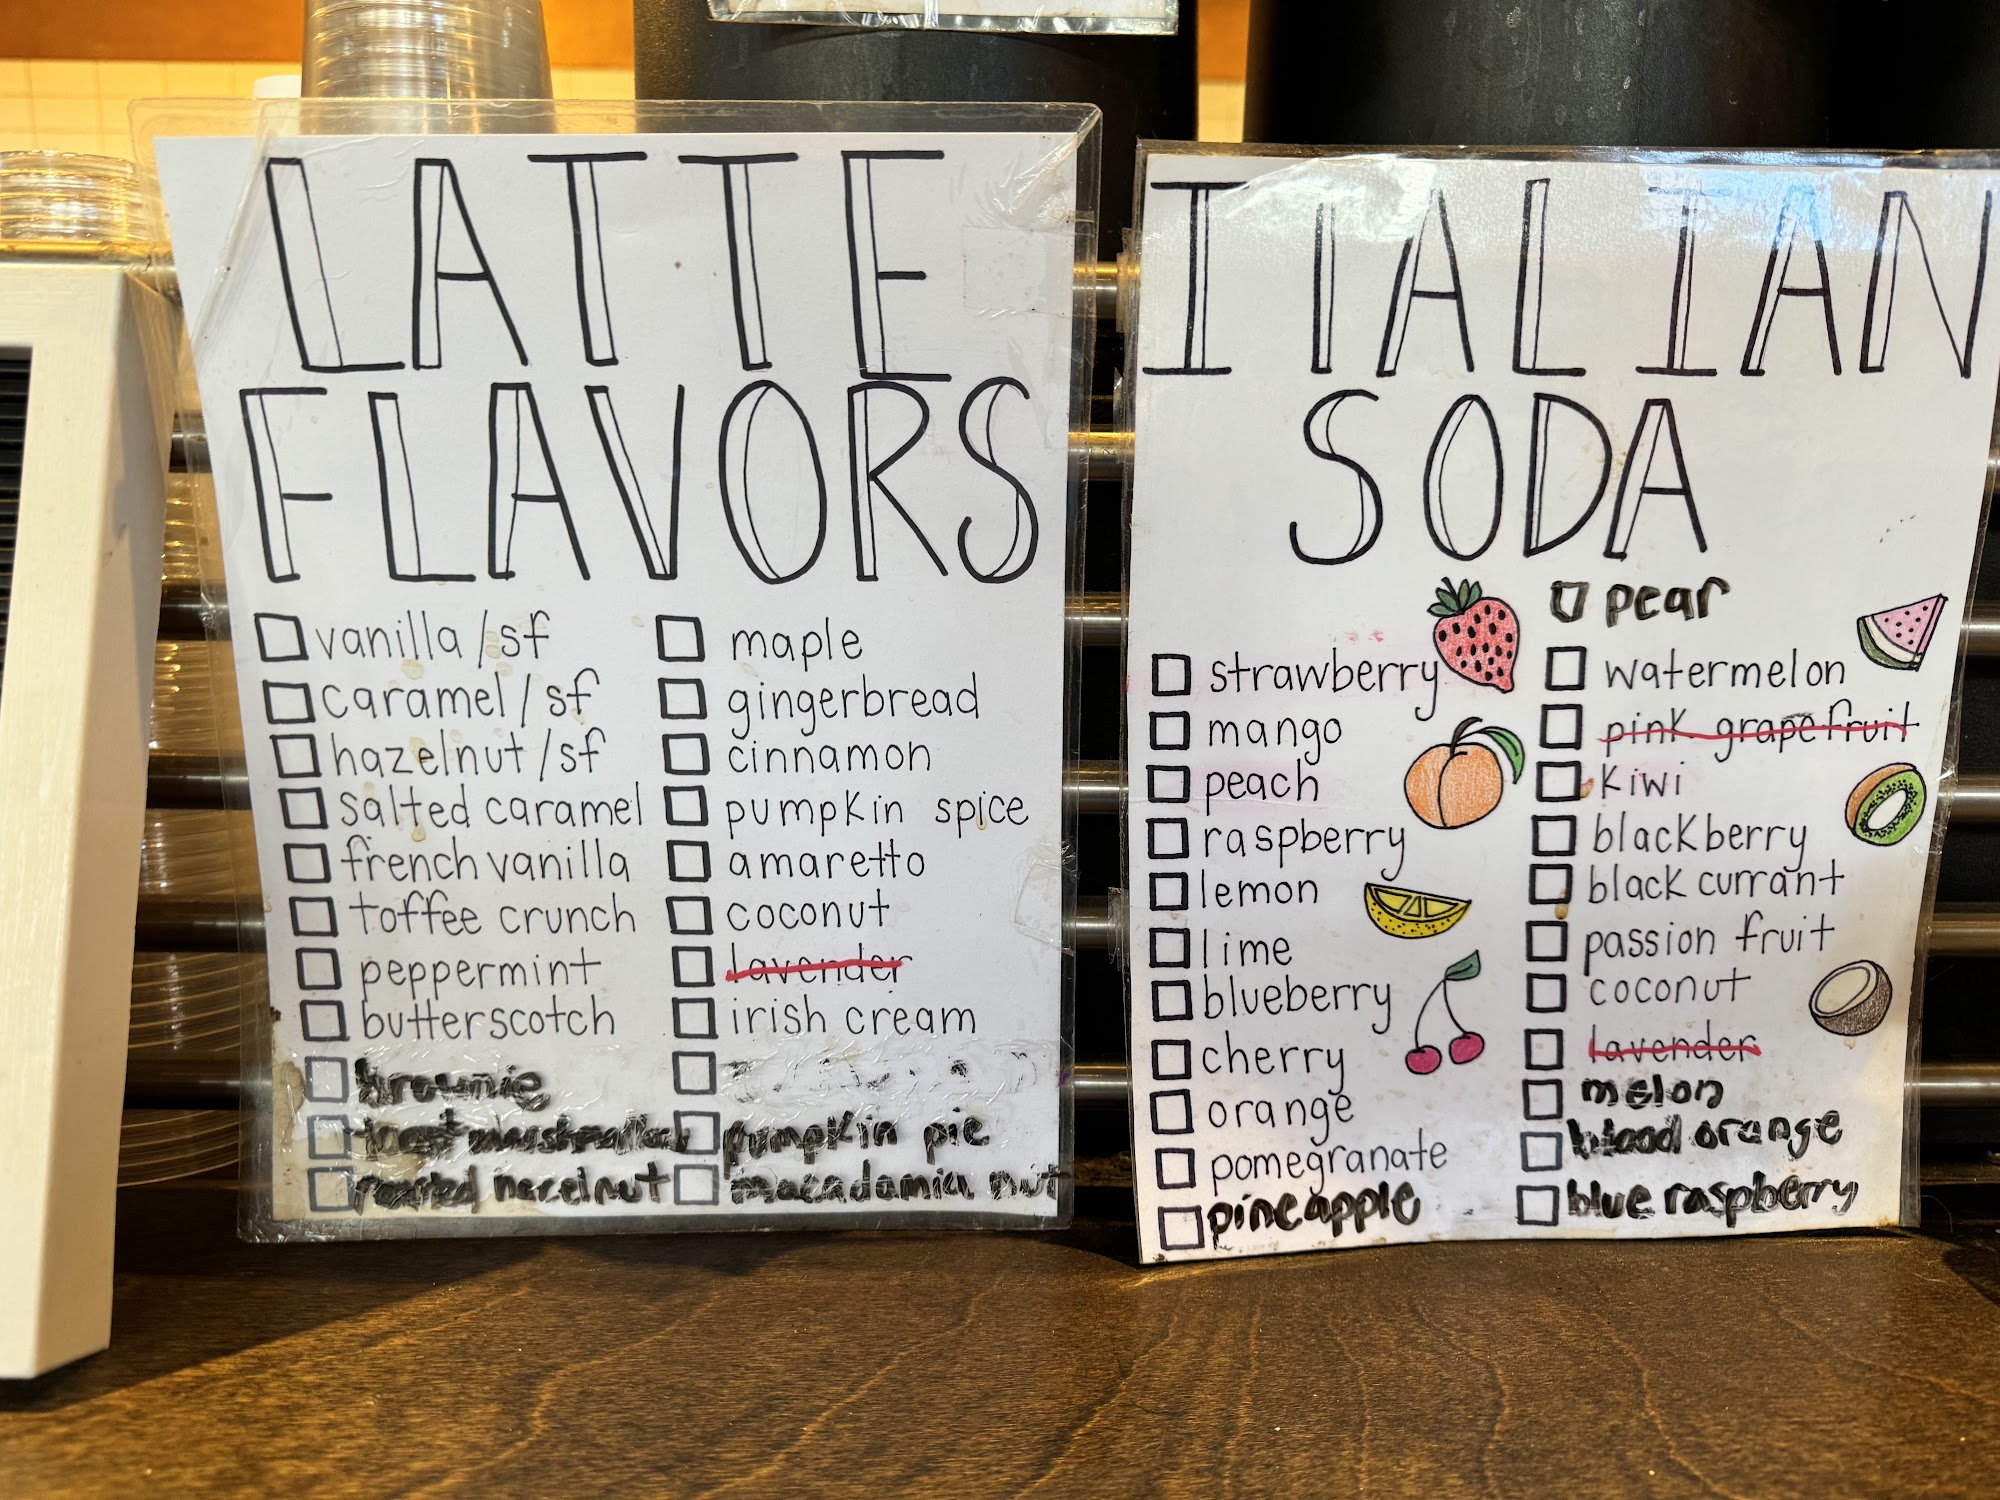 LATTE
FLAVORS
vanilla/sf
caramel/sf
hazelnut/sf
salted caramel
french vanilla
toffee crunch
peppermint
butterscotch
brownie
toast marshmallow
roasted hazelnut
maple
gingerbread
cinnamon
pumpkin spice
amaretto
coconut
lavender
irish cream
pumpkin pie
macadamia nut
ITALIAN
SODA
strawberry
mango
peach
raspberry
lemon
lime
blueberry
cherry
orange
pomegranate
pineapple
pear
watermelon
pink grapefruit
kiwi
blackberry
black currant
passion fruit
coconut
lavender
melon
blood orange
blue raspberry